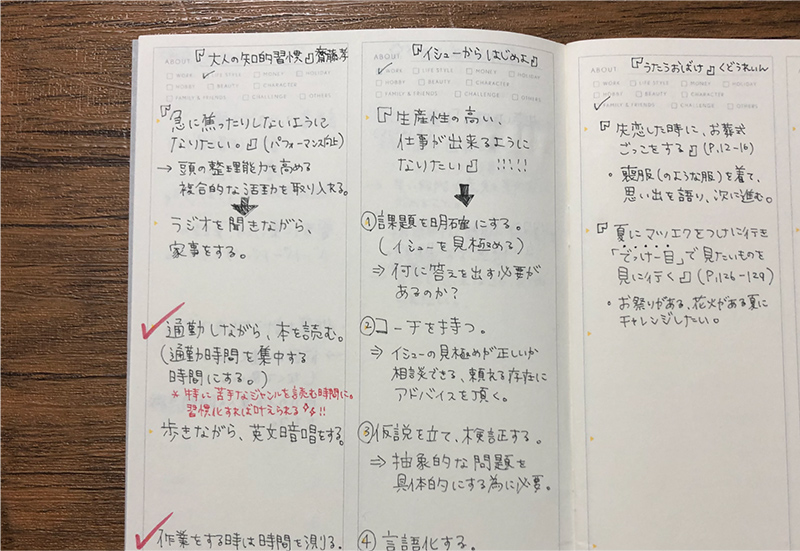 ABOUT 『大人の知的習慣』齋藤孝
WORK LIFE STYLE MONEY HOLIDAY
HOBBY BEAUTY CHARACTER
FAMILY & FRIENDS CHALLENGE OTHERS
『急に焦ったりしないようして
なりたい。』(パフォーマンス向上)
→ 頭の整理能力を高める
複合的な活動を取り入れる。
ラジオを聞きながら、
家事をする。
通勤しながら、本を読む。
(通勤時間を集中する
時間にする。)
* 特に苦手なジャンルを読む時間に。
習慣化すれば叶えられる!!
歩きながら、英文暗唱をする。
作業をする時は時間を測る。
ABOUT 『イシューからはじめよ』
WORK LIFE STYLE MONEY HOLIDAY
HOBBY BEAUTY CHARACTER
FAMILY & FRIENDS CHALLENGE OTHERS
『生産性の高い、
仕事が出来るように
なりたい』!!!!!
①課題を明確にする。
(イシューを見極める)
⇒ 何に答えを出す必要が
あるのか?
②コーチを持つ。
⇒ イシューの見極めが正しいか
相談できる、頼れる存在に
アドバイスを頂く。
③仮説を立て、検証する。
⇒ 抽象的な問題を
具体的にする為に必要。
④ 言語化する。
ABOUT 『うたうおばけ』くどうれいん
WORK LIFE STYLE MONEY HOLIDAY
HOBBY BEAUTY CHARACTER
FAMILY & FRIENDS CHALLENGE OTHERS
『失恋した時に、お葬式
ごっこをする』(P,12-16)
・喪服(のような服)を着て、
思い出を語り、次に進む。
『夏にマツエクをつけに行き
「でっけー目」で見たいものを
見に行く』(P,126-129)
・お祭りがある、花火がある夏に
チャレンジしたい。